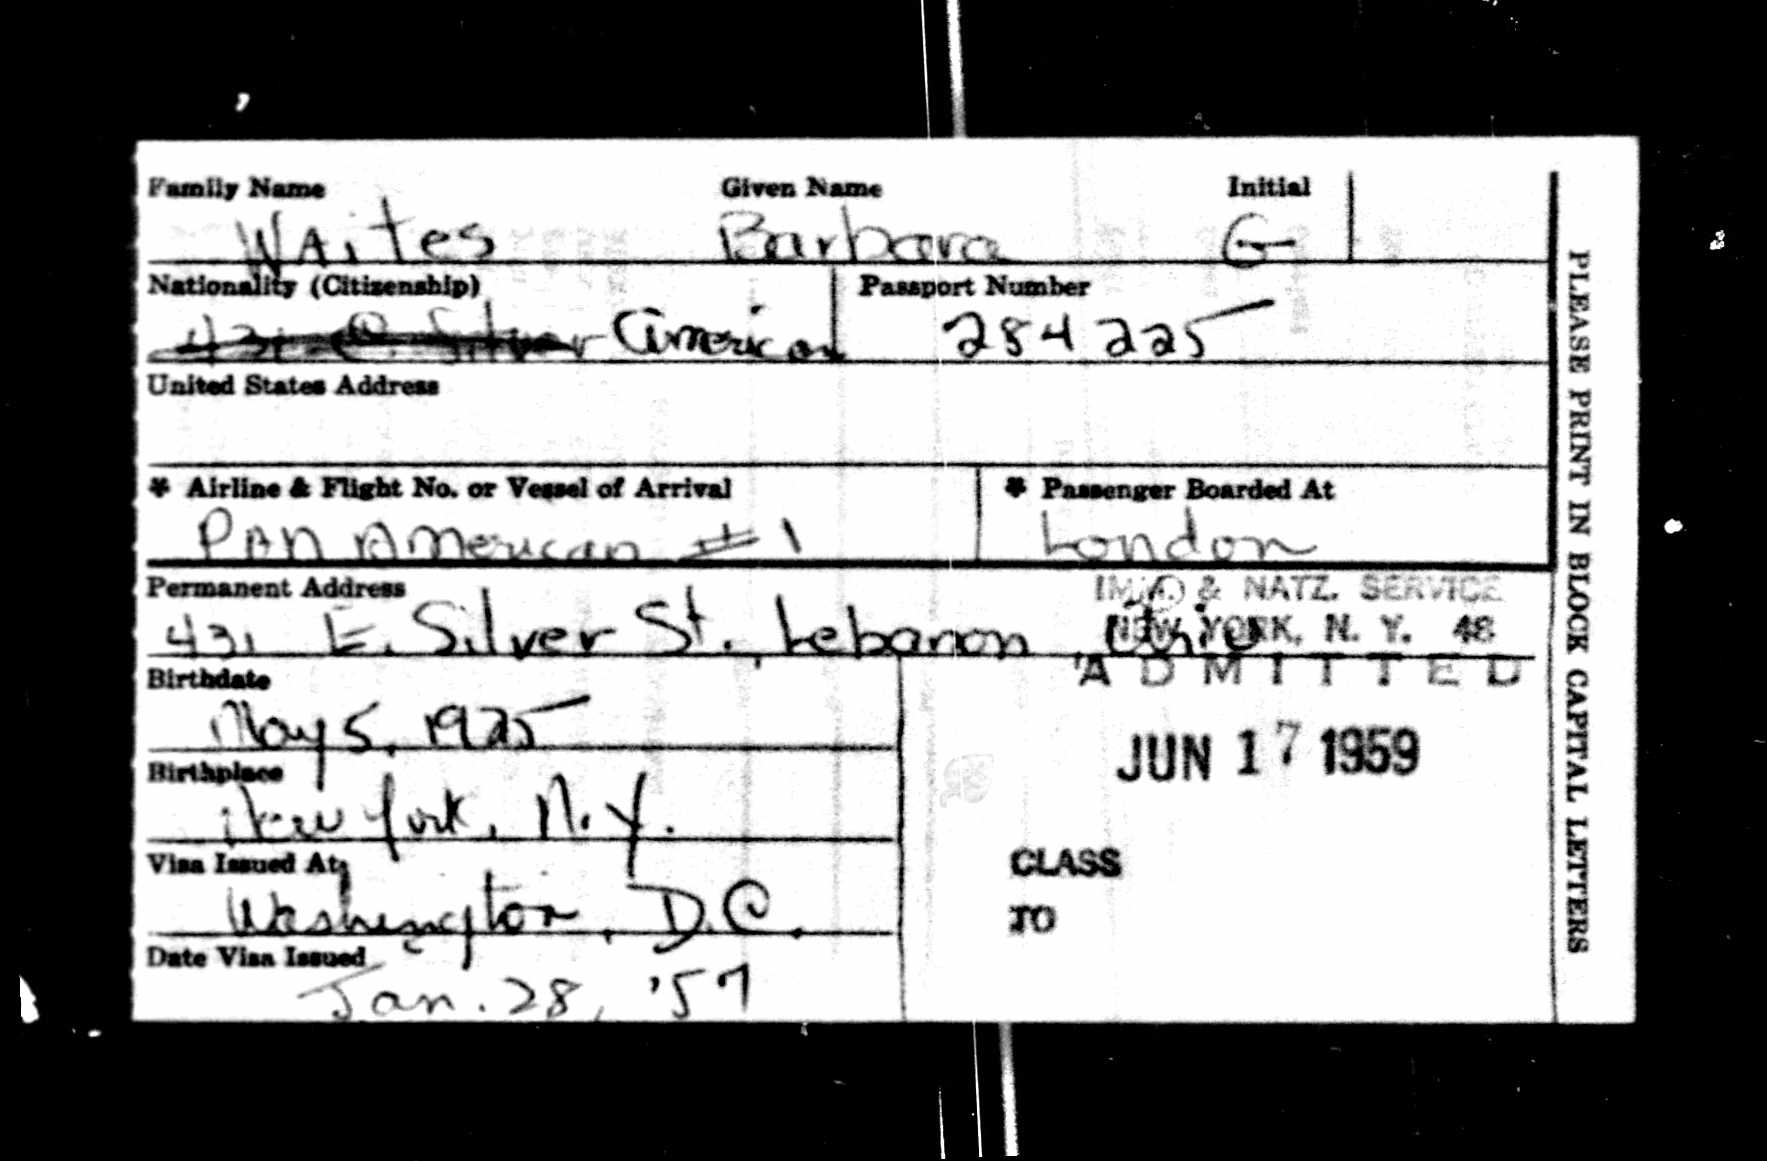 Family Name Given Name Initial
WAites Barbara G
Nationality (Citizenship) Passport Number
431 E. Silver American 284225
United States Address
* Airline & Flight No. or Vessel of Arrival * Passenger Boarded At
PAN AMerican #1 London
Permanent Address
431 E. Silver St., Lebanon, Ohio
IMM. & NATZ. SERVICE
NEW YORK, N. Y. 48
ADMITTED
Birthdate
May 5, 1925
JUN 17 1959
Birthplace
New York, N.Y.
Visa Issued At
Washington, D.C.
CLASS
TO
Date Visa Issued
Jan. 28, '57
PLEASE PRINT IN BLOCK CAPITAL LETTERS